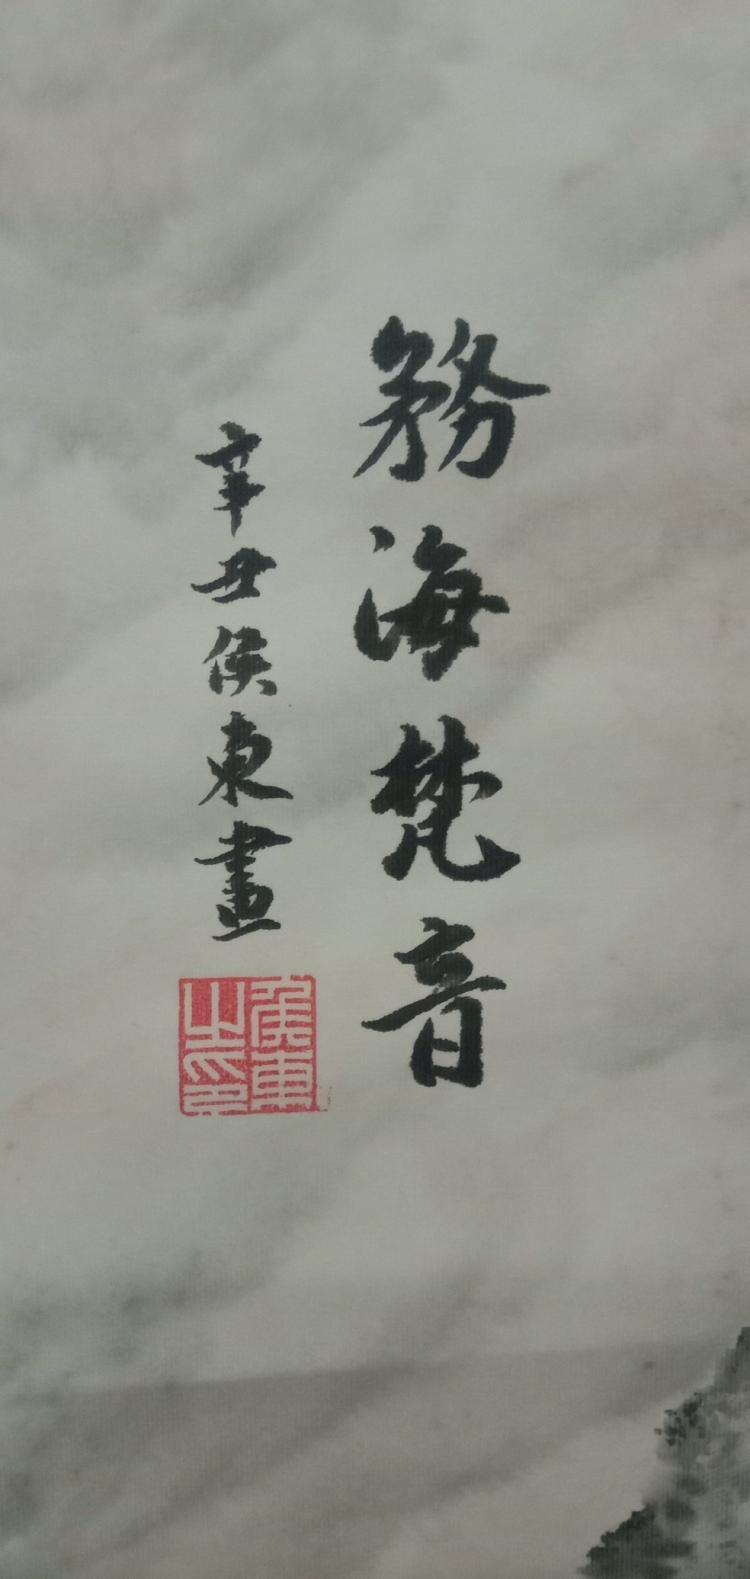 務海梵音
辛丑侯東畫
侯東之印